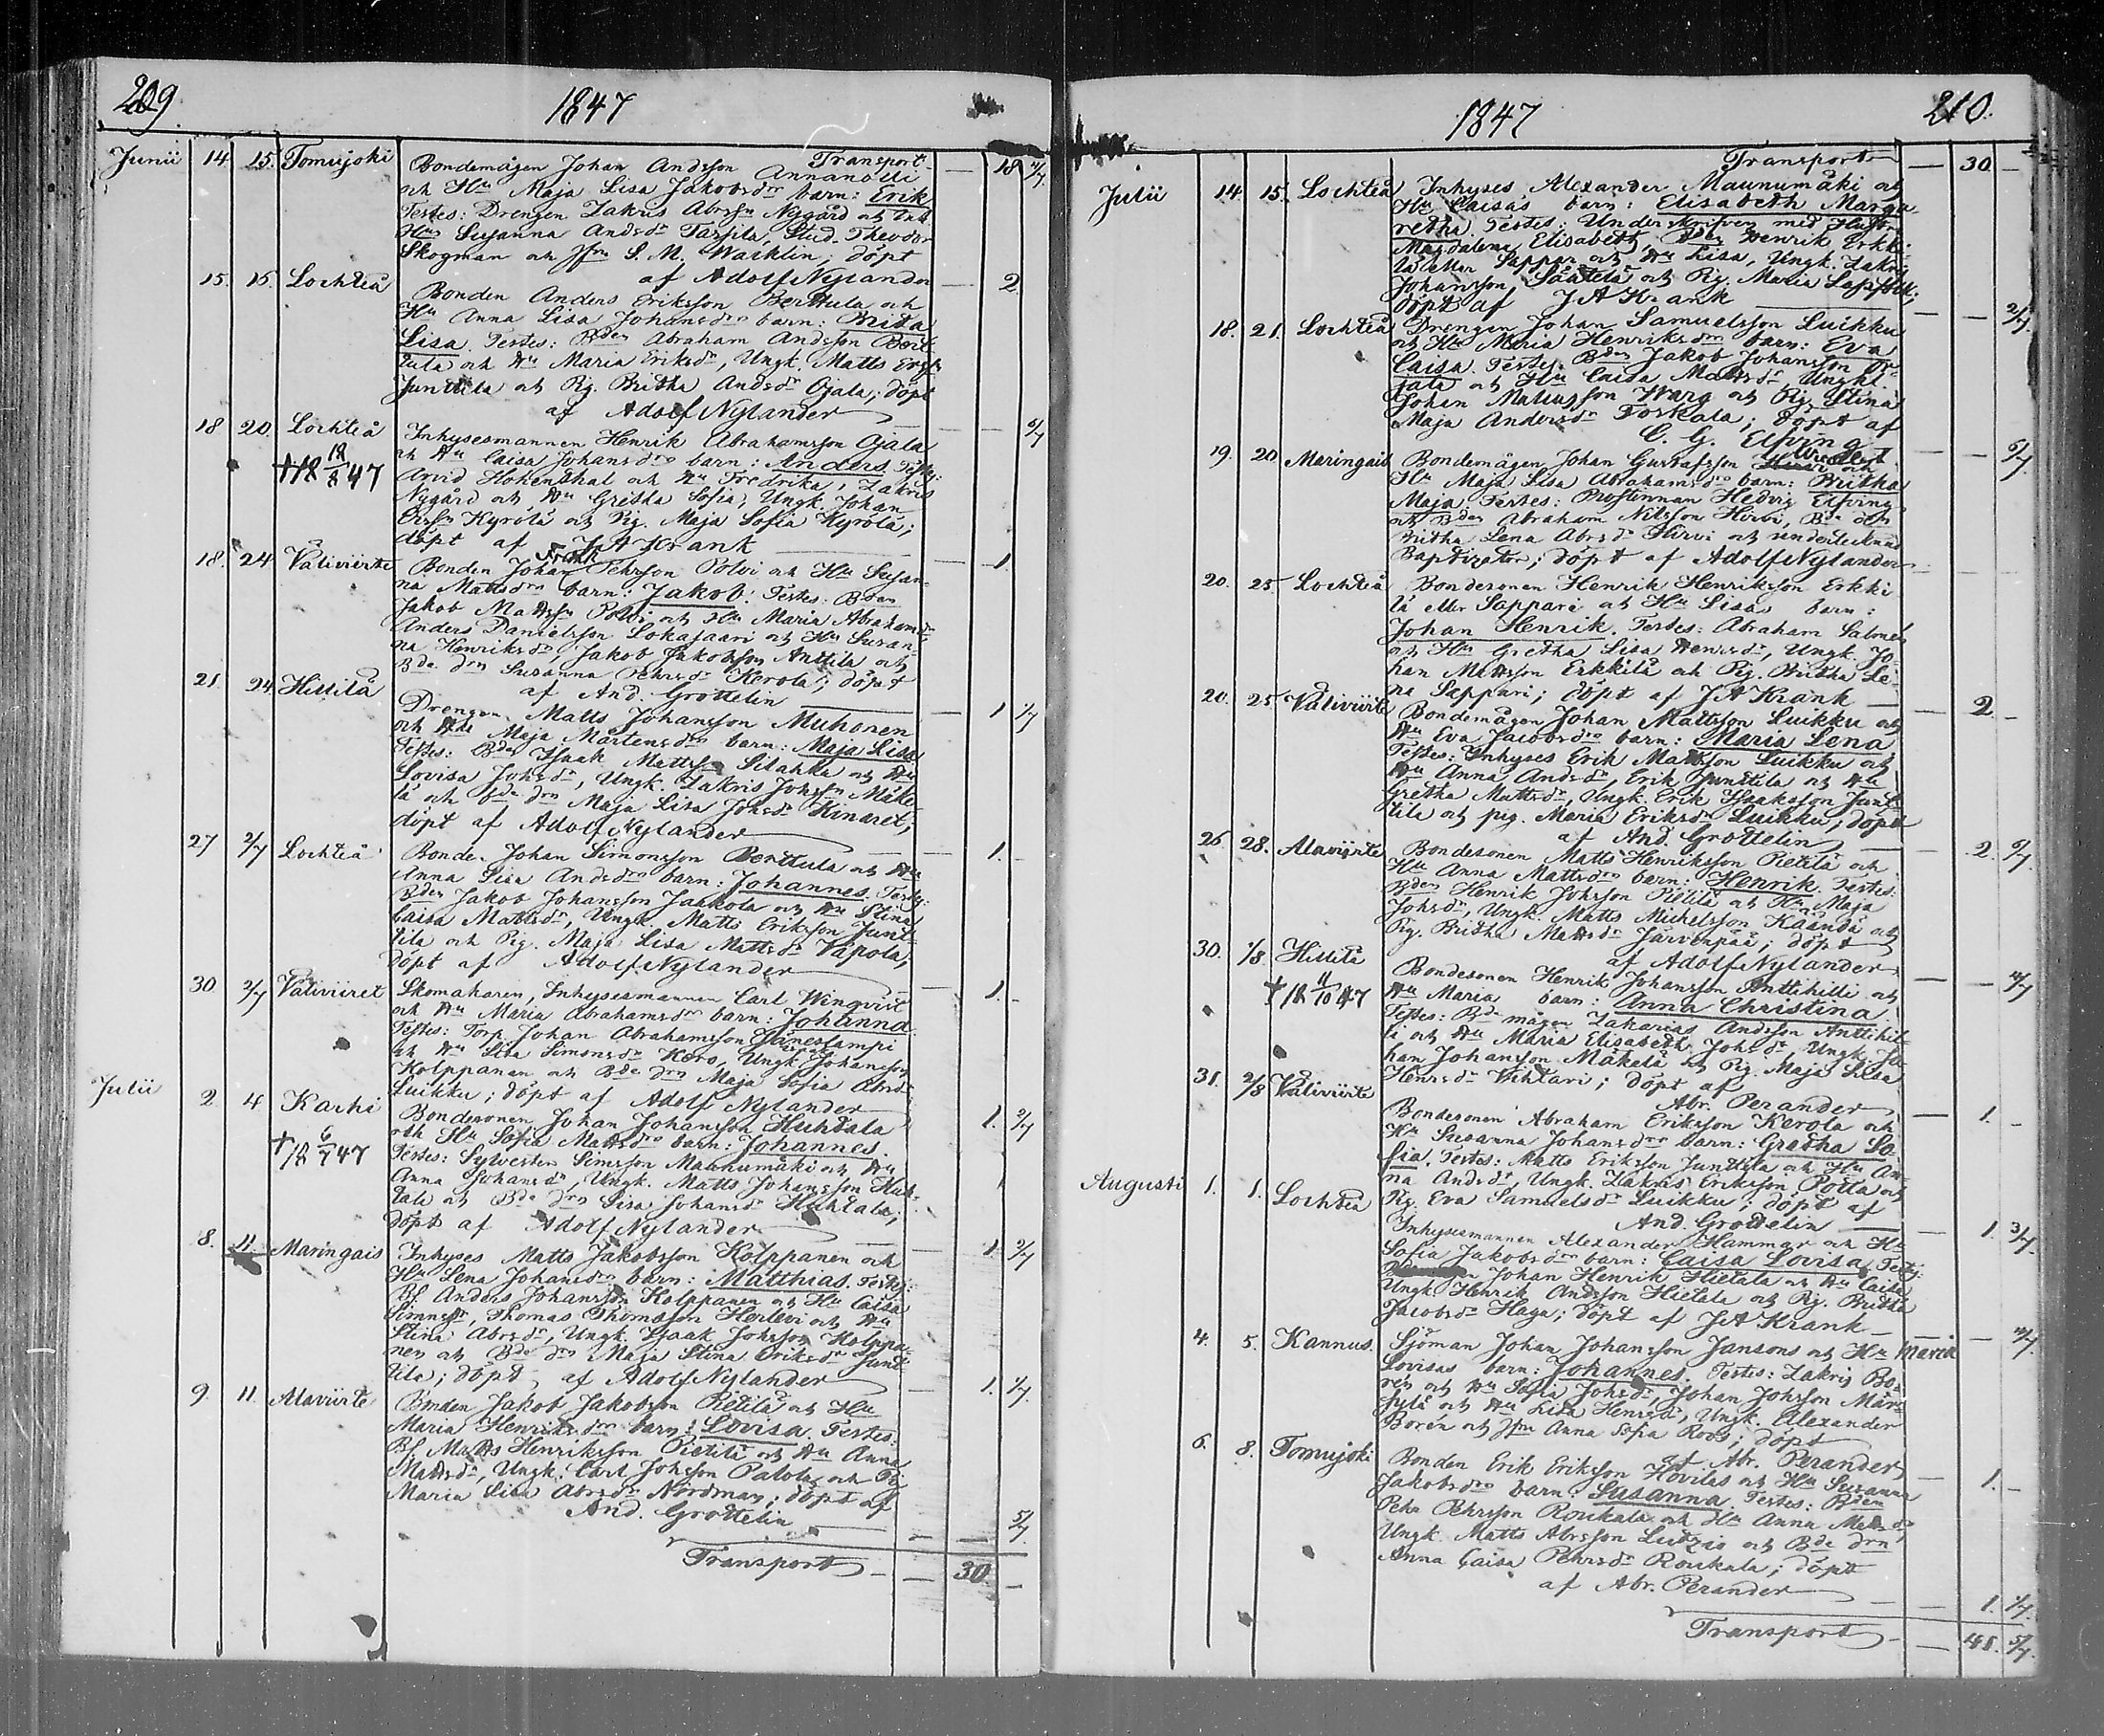 209.
1847
Transport 18 4/7
Junii 14 15. Tomujoki Bondemågen Johan Andsson Annanolli
och Hu Maja Lisa Jakobsdrs barn: Erik
Testes: Drengen Zakris Abrssn Nygård och
Hus Susanna Andsdr Tassila, Stud. Theodor
Skogman och Jfrn S. M. Wacklin; döpt
af Adolf Nylander — 2
15. 15. Lochteå Bonden Anders Eriksson Berttula och
Hu Anna Lisa Johansdrs barn: Brita
Lisa. Testes: Bden Abraham Andsson Bert-
tula och Hu Maria Eriksdr, Ungk. Matts
Junttila och Pig. Britha Andsdr Ojala; döpt
af Adolf Nylander — — 6/7
18 20. Lochteå Inhysesmannen Henrik Abrahamsson Ojala
och Hu Caisa Johansdrs barn: Anders. Testes:
†18 18/8 47
Arvid Hohenthal och Hu Fredrika, Zakris
Nygård och Hu Gretha Sofia, Ungk. Johan
Kyrölä och Pig. Maja Sofia Kyrölä;
döpt af J A Krank — 1.
18. 24 Väliviirte Bonden Johan Pehrsson Polvi och Hu Susan-
na Mattsdrs barn: Jakob. Testes. Bden
Jakob Mattssn Polvi och Hu Maria Abrahamsdr
Anders Danielsson Lokasaari och Hu Susan-
na Henriksdr, Jakob Jakobsson Anttila och
Bde drn Susanna Pehrsdr Kerola; döpt
af And. Grottelin — 1 1/7
21. 24. Hillilä Drengen Matts Johansson Muhonen
och Hu Maja Mårtensdrs barn: Maja Lisa
Testes: Bden Isaak Mattsson Silahka och Hu
Lovisa Johsdr, Ungk. Zakris Johssn Mäke-
lä och Bde drn Maja Lisa Johsdr Kinaret;
döpt af Adolf Nylander — 1. —
27 2/7 Lochteå Bonden Johan Simonsson Berttula och Hu
Anna Lisa Andsdrs barn: Johannes. Testes:
Bden Jakob Johansson Jaakola och Hu Stina
Caisa Mattsdr, Ungk. Matts Eriksson Junt-
tila och Pig. Maja Lisa Mattsdr Vapola;
döpt af Adolf Nylander — 1. —
30 2/7 Väliviiret Skomakaren, Inhysesmannen Carl Winqvist
och Hu Maria Abrahamsdrs barn: Johanna
Testes: Torp. Johan Abrahamsson Jäneslampi
och Hu Lisa Simonsdr Kero, Ungk. Johansson
Kolppanen och Bde drn Maja Sofia
Luikku; döpt af Adolf Nylander — 1. 2/7
Julii 2 4 Karhi Bondesonen Johan Johansson Huhtala
och Hu Sofia Mattsdrs barn: Johannes.
†18 6/7 47
Testes: Sylvester Simsson Maunumäki och Hu
Anna Johansdr, Ungk. Matts Johansson Huh-
tala och Bde drn Lisa Johansdr Huhtala;
döpt af Adolf Nylander — 1 2/7
8. 11 Maringais Inhyses Matts Jakobsson Kolppanen och
Hu Lena Johansdrs barn: Matthias. Testes:
Bf. Anders Johansson Kolppanen och Hu Caisa
Simnsdr, Thomas Thomasson Herlevi och Hu
Stina Absdr, Ungk. Isaak Johsson Kolppa-
nen och Bde drn Maja Stina Eriksdr Junt-
tila; döpt af Adolf Nylander — 1. 1/7.
9. 11. Alaviirte Bonden Jakob Jakobsson Pietilä och Hu
Maria Henriksdrs barn: Lovisa. Testes:
Bf. Matts Henriksson Pietilä och Hu Anna
Mattsdr, Ungk. Carl Johsson Palola och Pig
Maria Lisa Absdr Nordman; döpt af
And. Grottelin — — 5/7.
Transport — 30. —
1847
210.
Transport — 30 —
Julii 14. 15. Lochteå Inhyses Alexander Maunumäki och
Hu Caisas barn: Elisabeth Marga-
retha. Testes: Underskrifven med Hustru
Magdalena Elisabeth, Bden Henrik Erkki-
lä eller Sappar och Hu Lisa, Ungk. Zakris
Johansson Säätelä och Pig. Maria Lassfolk;
döpt af J A Krank — — 2/7.
18. 21. Lochteå Drengen Johan Samuelsson Luikku
och Hu Maria Henriksdrs barn: Eva
Caisa. Testes: Bden Jakob Johansson
jala och Hu Caisa Mattsdr, Ungk.
Johan Matiasson Warg och Pig. Stina
Maja Andersdr Torkala; döpt af
C. G. Elfving — — 6/7
19. 20. Maringais Bondemågen Johan Gustafsson och
Hu Maja Lisa Abrahamsdrs barn: Britha
Maja. Testes: Prostinnan Hedvig Elfving
och Bden Abraham Nilsson Hirvi, Bde drn
Britha Lena Absdr Hirvi och undertecknad
Baptizator; döpt af Adolf Nylander — — —
20. 25. Lochteå Bondesonen Henrik Henriksson Erkki
lä eller Sappari och Hu Lisas barn:
Johan Henrik. Testes: Abraham
och Hu Gretha Lisa Henrsdr, Ungk. Jo-
han Mattsson Erkkilä och Pig. Britha Le-
na Sappari; döpt af J A Krank — 2 —
20. 25 Väliviirte Bondemågen Johan Mattsson Luikku och
Hu Eva Jacobsdrs barn: Maria Lena
Testes: Inhyses Erik Mattsson Luikku och
Hu Anna Andsdr, Erik Junttila och Hu
Gretha Mattsdr, Ungk. Erik Isaaksson Junt-
tila och pig. Maria Eriksdr Luikku; döpt
af And. Grottelin — 2. 6/7
26 28. Alaviirte Bondesonen Matts Henriksson Pietilä och
Hu Anna Mattsdrs barn: Henrik. Testes:
Bden Henrik Johsson Pietilä och Hu Maja
Johsdr, Ungk. Matts Michelsson Käändä och
Pig. Britha Mattsdr Järvenpää; döpt
af Adolf Nylander — — 4/7
30. 1/8 Hillilä Bondesonen Henrik Johansson Anttihilli och
†18 11/10 47
Hu Maria barn: Anna Christina.
Testes: Bde mågen Zakarias Andsson Anttihil-
li och Hu Maria Elisabeth Johsdr, Ungk. Jo-
han Johansson Mäkelä och Pig. Maja Lisa
Henrsdr Vihtari; döpt af
Abr. Perander — 1. —
31. 2/8 Väliviirte Bondesonen Abraham Eriksson Kerola och
Hu Susanna Johansdrs barn: Gretha So-
fia. Testes: Matts Eriksson Junttila och Hu An-
na Andsdr, Ungk. Zakris Eriksson Potla och
Pig. Eva Samuelsdr Luikku; döpt af
And. Grottelin — 1. 3/7.
Augusti 1. 1. Lochteå Inhysesmannen Alexander Hammar och Hu
Sofia Jakobsdrs barn: Caisa Lovisa. Testes:
Johan Henrik Hietala och Hu Caisa
Ungk. Henrik Andsson Hietala och Pig. Britha
Jacobsdr Haga; döpt af J A Krank — — 4/7.
4. 5. Kannus. Sjöman Johan Johansson Jansons och Hu Maria
Lovisas barn: Johannes. Testes: Zakris Bo-
ren och Hu Sofia Johsdr, Johan Johsson Mär-
sylä och Hu Lisa Henrsdr, Ungk. Alexander
Boren och Jfrn Anna Sofia Roos; döpt
af Abr. Perander — 1. —
6. 8. Tomujoki Bonden Erik Eriksson Hovila och Hu Susanna
Jakobsdrs barn: Susanna. Testes: Bden
Pehr Pehrsson Roukala och Hu Anna Mattsdr
Ungk. Matts Absson och Bde drn
Anna Caisa Pehrsdr Roukala; döpt
af Abr. Perander — 1. 1/7.
Transport — 41. 5/7.